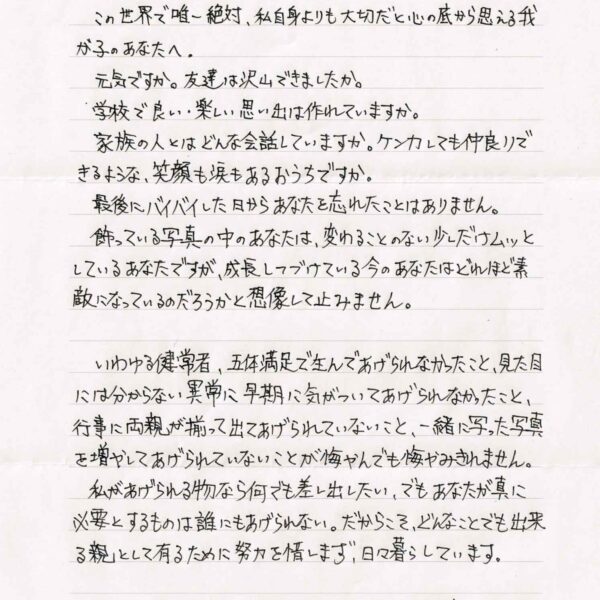 この世界で唯一絶対、私自身よりも大切だと心の底から思える我
が子のあなたへ。
元気ですか。友達は沢山できましたか。
学校で良い・楽しい思い出は作れていますか。
家族の人とはどんな会話していますか。ケンカしても仲良りで
きるような、笑顔も涙もあるおうちですか。
最後にバイバイした日からあなたを忘れたことはありません。
飾っている写真の中のあなたは、変わることのない少しだけムッと
しているあなたですが、成長しつづけている今のあなたはどれほど素
敵になっているのだろうかと想像して止みません。
いわゆる健常者、五体満足で生んであげられなかったこと、見た目
には分からない異常に早期に気がついてあげられなかったこと、
行事に両親が揃って出てあげられていないこと、一緒に写った写真
を増やしてあげられていないことが悔やんでも悔やみきれません。
私があげられる物なら何でも差し出したい、でもあなたが真に
必要とするものは誰にもあげられない。だからこそ、どんなことでも出来
る親」として有るために努力を惜しまず、日々暮らしています。